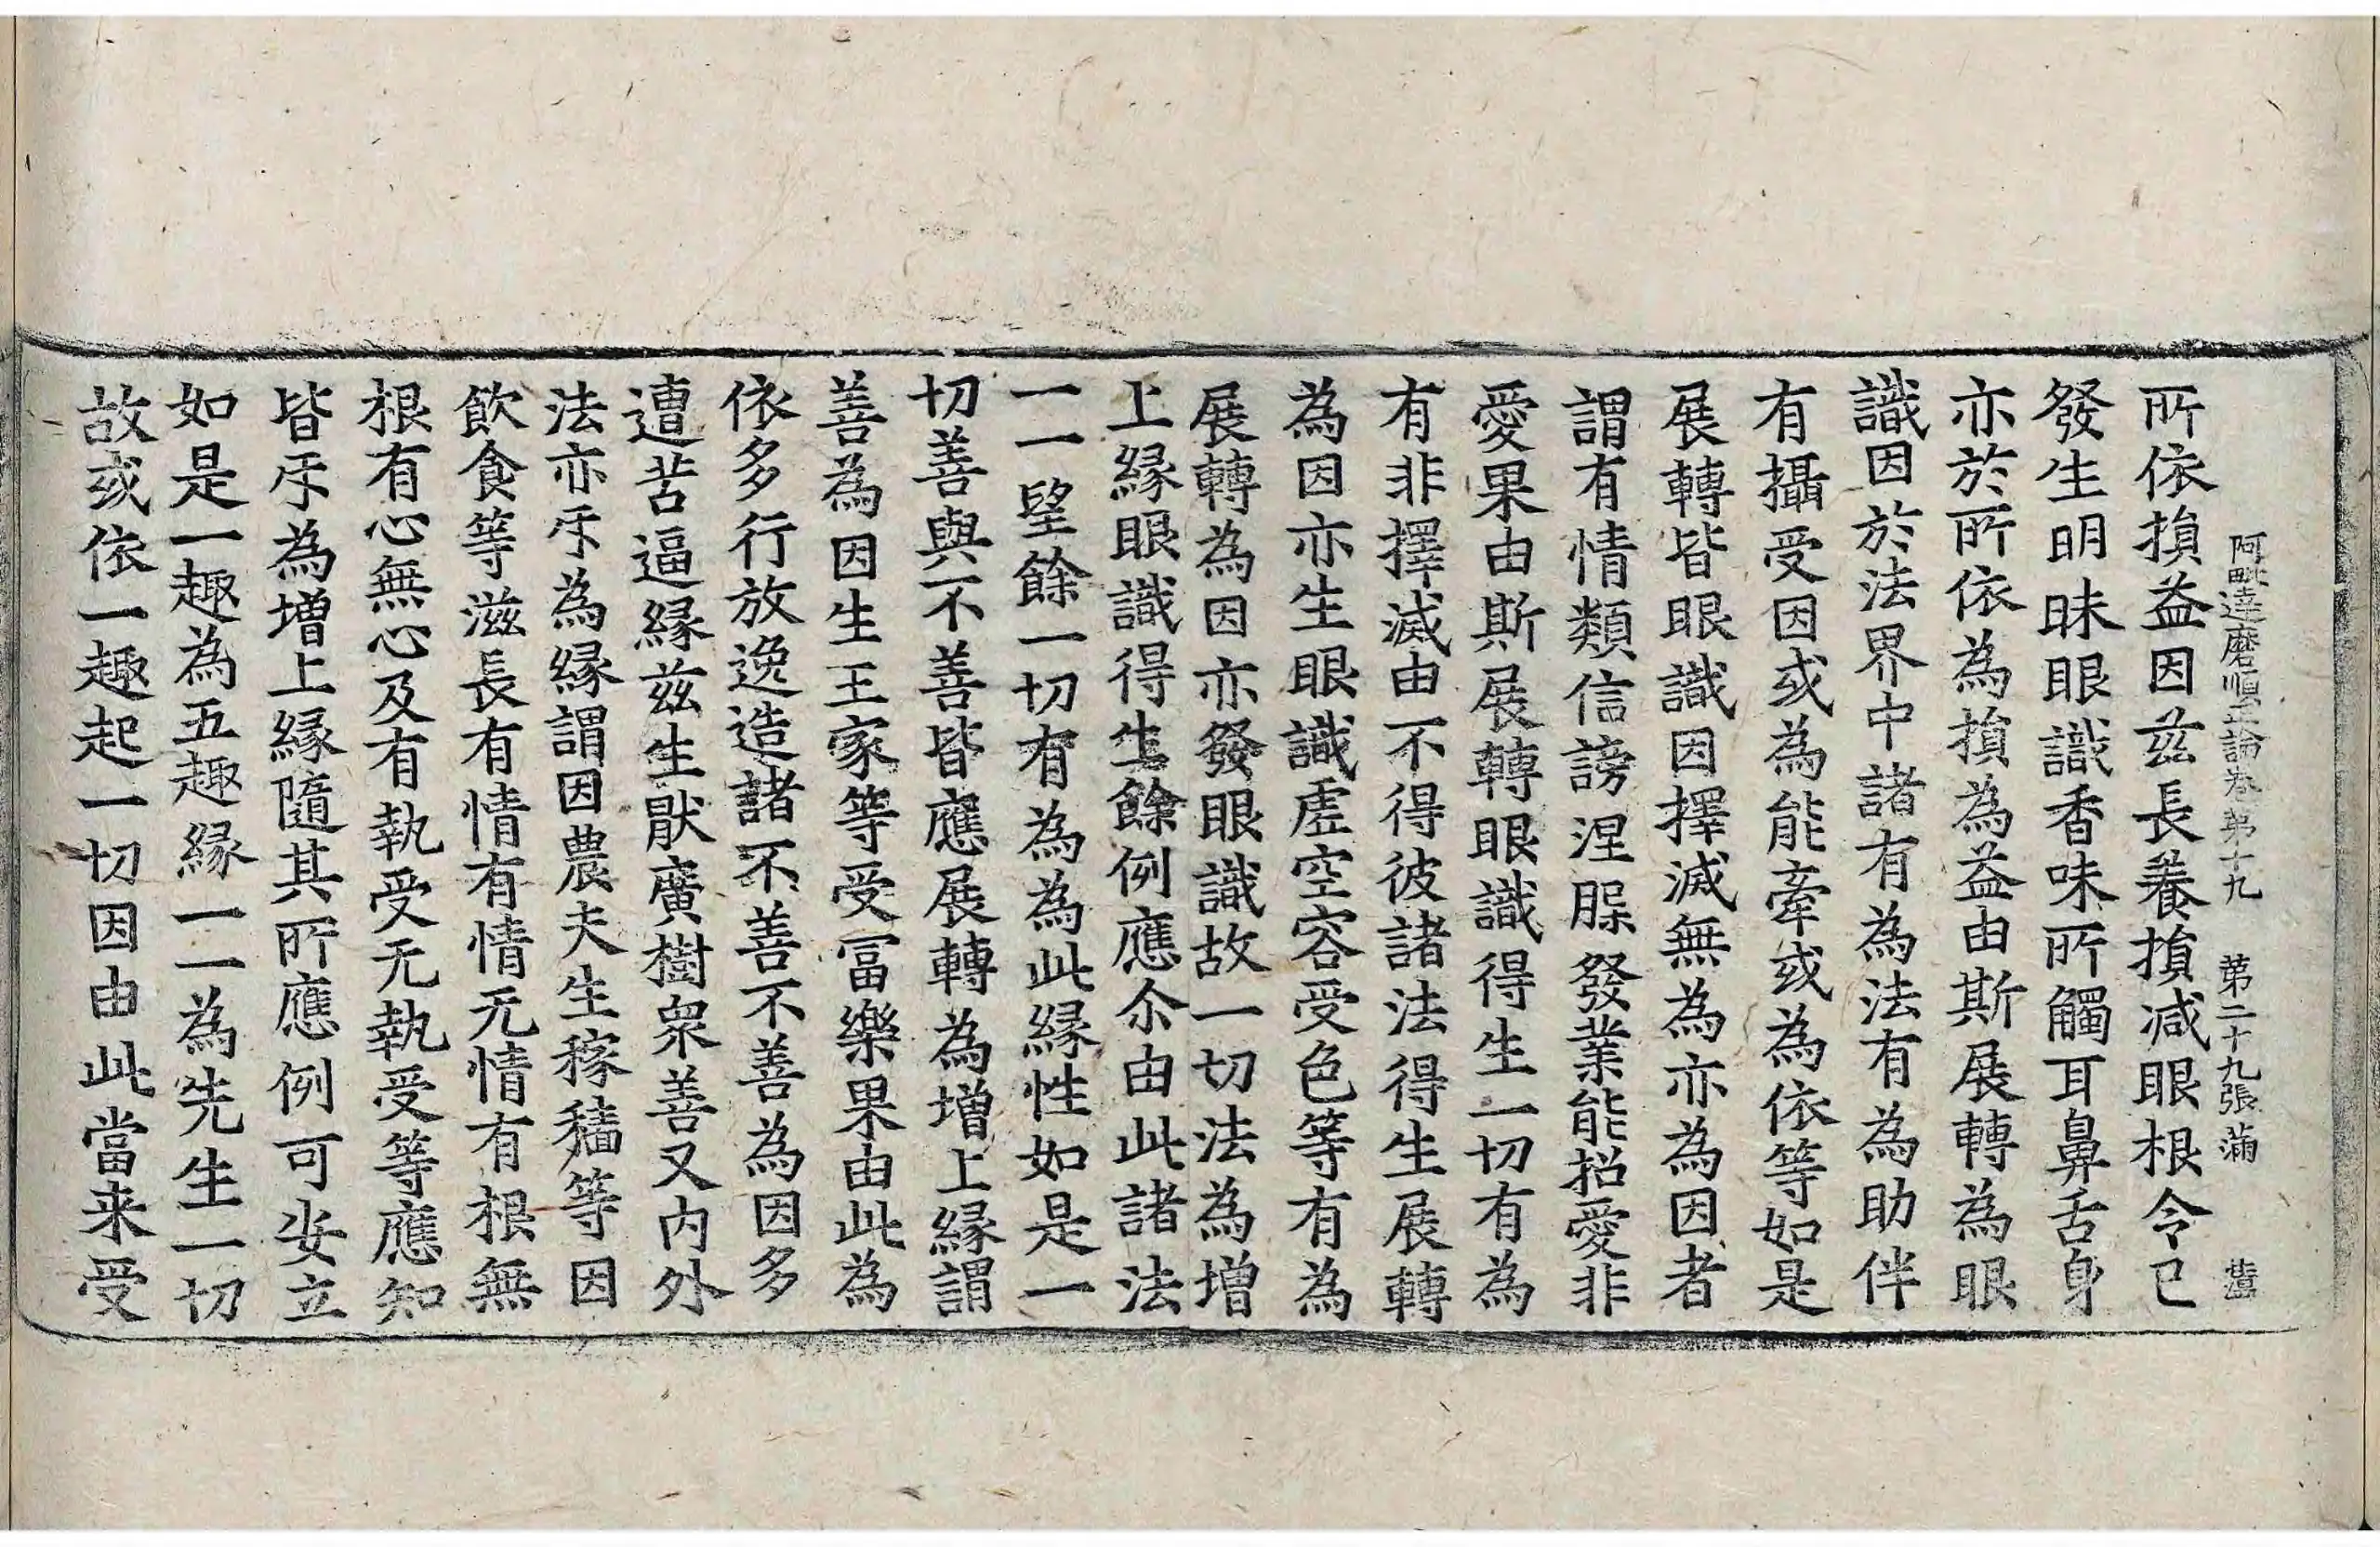 阿毗達磨順正論卷第十九　第二十九張　滿
所依損益因茲長養損減眼根令已
發生明昧眼識香味所觸耳鼻舌身
亦於所依為損為益由斯展轉為眼
識因於法界中諸有為法有為助伴
有攝受因或為能牽或為依等如是
展轉皆眼識因擇滅無為亦為因者
謂有情類信謗涅槃發業能招愛非
愛果由斯展轉眼識得生一切有為
有非擇滅由不得彼諸法得生展轉
為因亦生眼識虛空容受色等有為
展轉為因亦發眼識故一切法為增
上緣眼識得生餘例應尒由此諸法
一一望餘一切有為為此緣性如是一
切善與不善皆應展轉為增上緣謂
善為因生王家等受冨樂果由此為
依多行放逸造諸不善不善為因多
遭苦逼緣茲生猒廣樹衆善又內外
法亦㸦為緣謂因農夫生稼穡等因
飲食等滋長有情有情无情有根無
根有心無心及有執受无執受等應知
皆㸦為增上緣隨其所應例可安立
如是一趣為五趣緣一一為先生一切
故或依一趣起一切因由此當来受